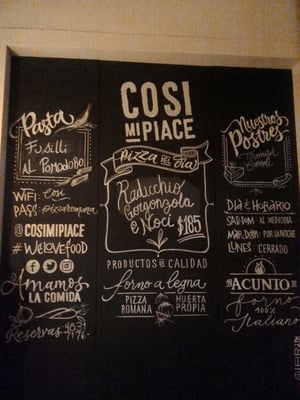 Pasta
Fusilli
AL Pomodoro
WIFI: Cosi
PASS: @pizzaromana
@COSIMIPIACE
#WELOVEFOOD
Amamos
LA COMIDA
Reservas
COSI
MI PIACE
Pizza DEL Dia
Radicchio
Gorgonzola
e Noci
$185
PRODUCTOS DE CALIDAD
forno a legna
PIZZA
ROMANA
HUERTA
PROPIA
Nuestros
Postres
DIA & HORARIO
SAB-DOM: AL MEDIODIA
MAR-DOM: POR LA NOCHE
LUNES: CERRADO
ACUNTO
Forno
100%
Italiano